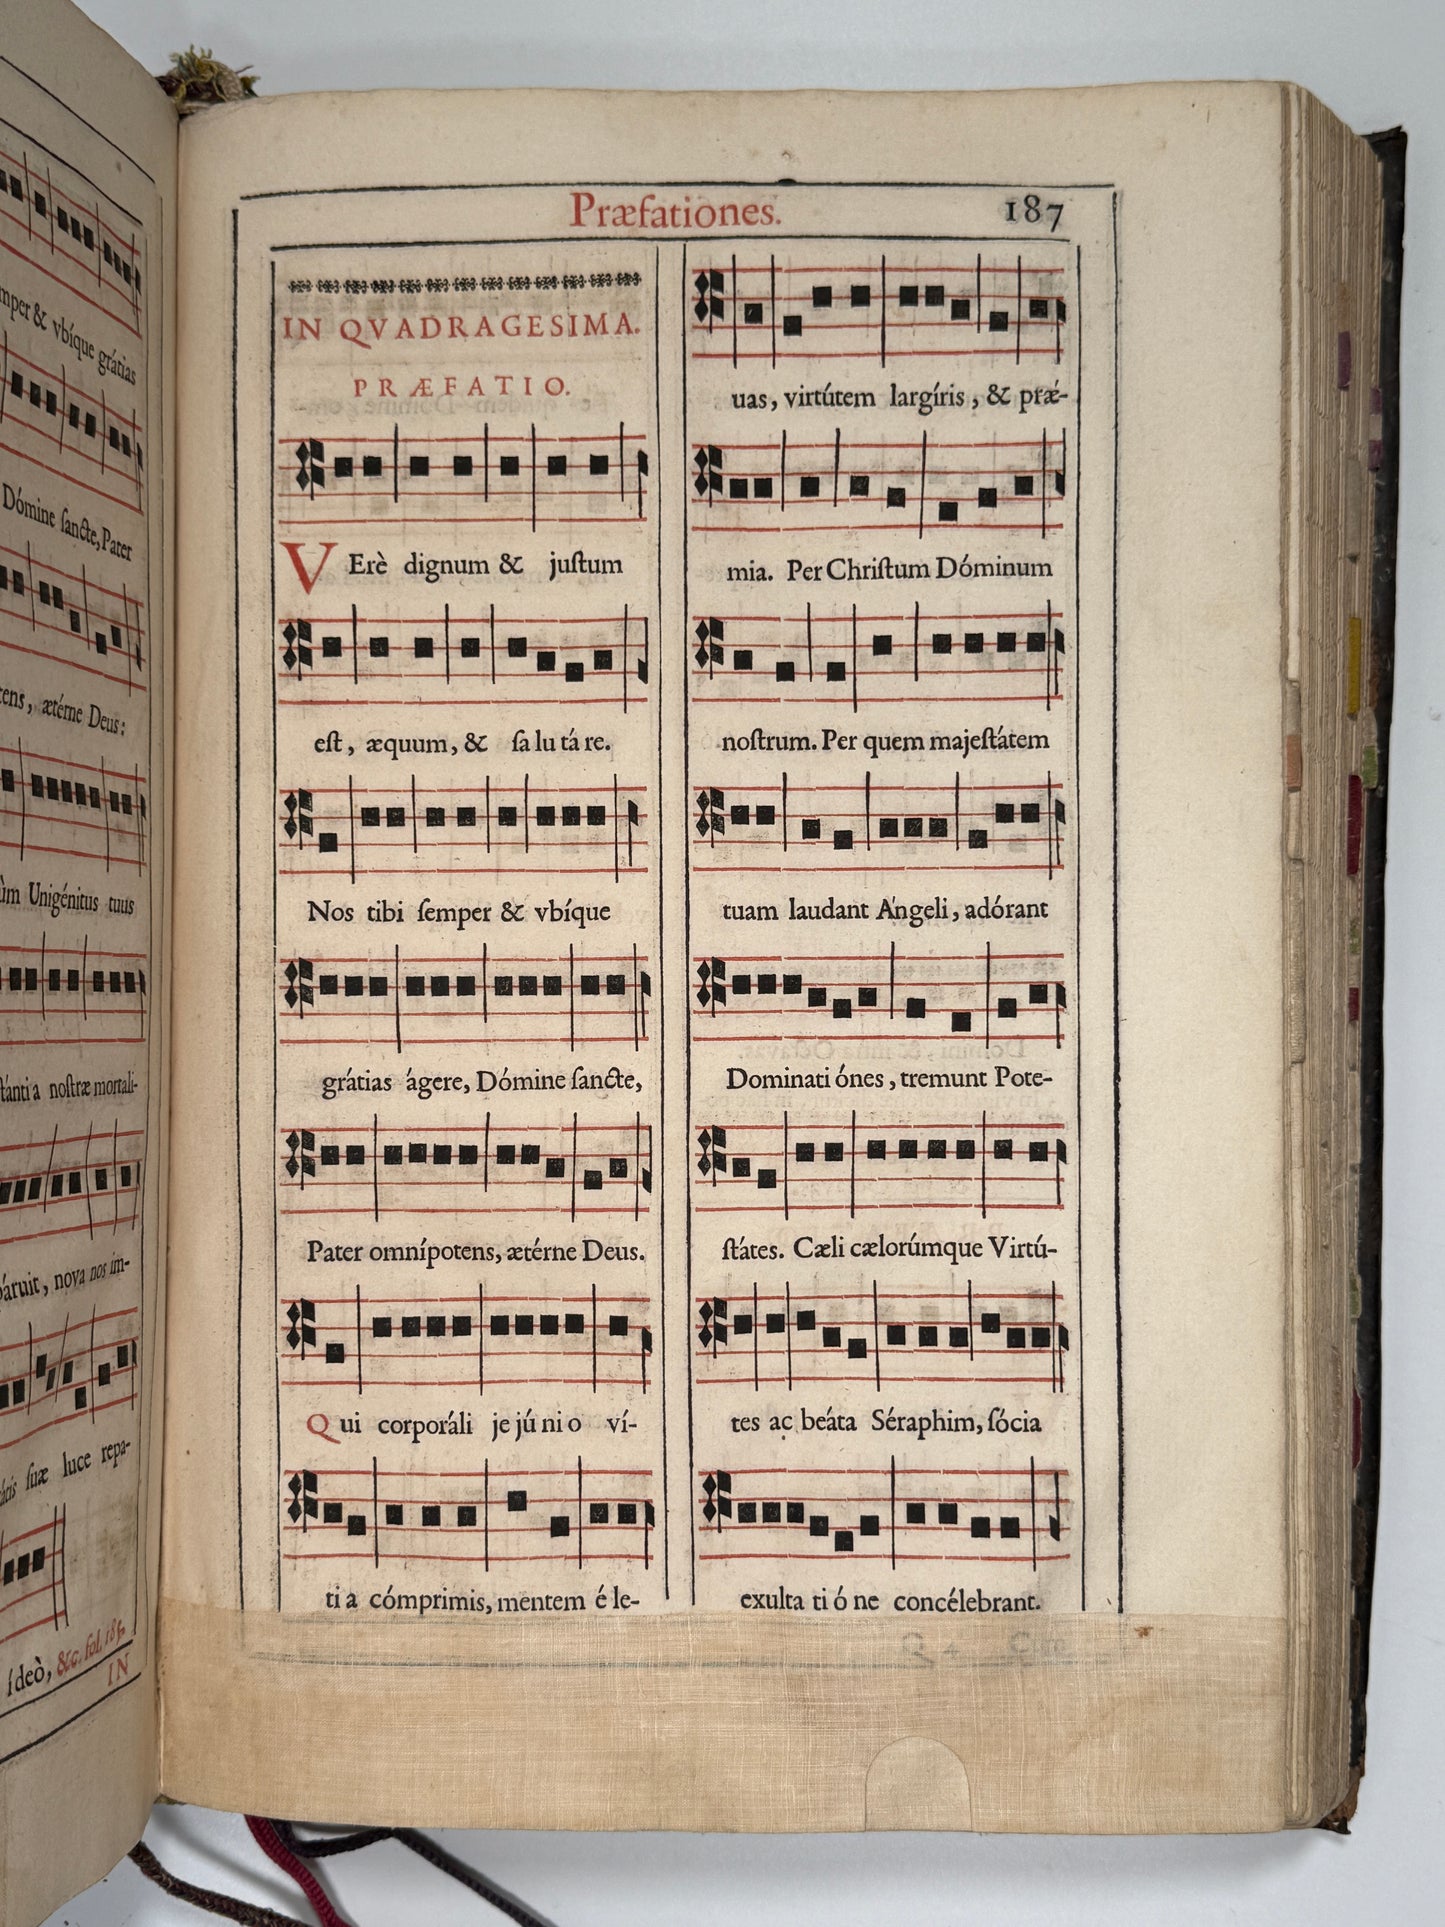 mper & vbíque grátias
Dómine ſancte, Pater
tens, ætérne Deus:
ùm Unigénitus tuus
tánti a noſtræ mortali-
páruit, nova nos im-
átis ſuæ luce repa-
ídeò, &c. fol. 185.
IN
Præfationes. 187
IN QVADRAGESIMA.
PRÆFATIO.
VErè dignum & juſtum
eſt, æquum, & ſa lu tá re.
Nos tibi ſemper & vbíque
grátias ágere, Dómine ſancte,
Pater omnípotens, ætérne Deus.
Q ui corporáli je jú ni o ví-
ti a cómprimis, mentem é le-
uas, virtútem largíris, & præ-
mia. Per Chriſtum Dóminum
noſtrum. Per quem majeſtátem
tuam laudant Angeli, adórant
Dominati ónes, tremunt Pote-
ſtátes. Cæli cælorúmque Virtú-
tes ac beáta Séraphim, ſócia
exulta ti ó ne concélebrant.